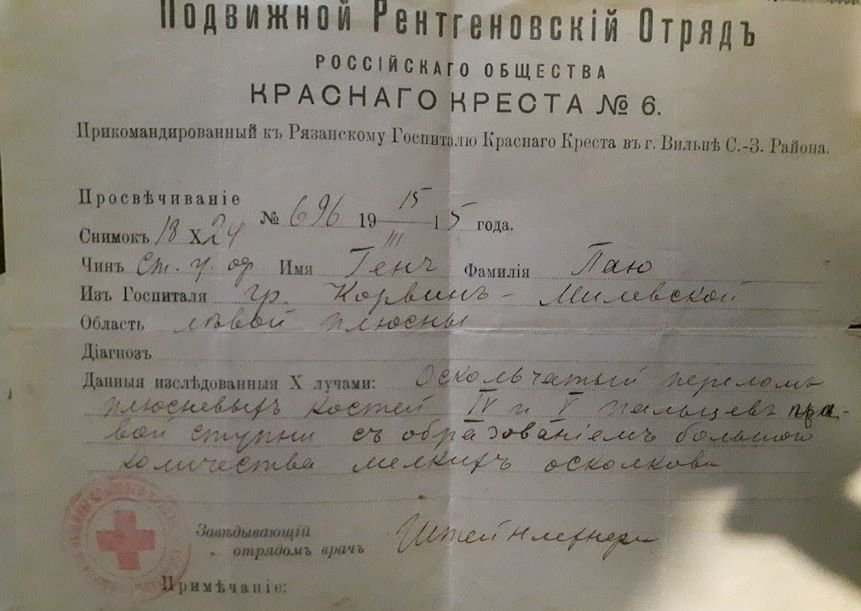 Подвижной Рентгеновскій Отрядъ
РОССІЙСКАГО ОБЩЕСТВА
КРАСНАГО КРЕСТА № 6.
Прикомандированный къ Рязанскому Госпиталю Краснаго Креста въ г. Вильнѣ С.-З. Района.
Просвѣчиваніе
Снимокъ 18 X 24 № 696 19 15/III 15 года.
Чинъ Ст. у. оф. Имя Генч Фамилія Паю
Изъ Госпиталя гр. Корвинъ-Милевской
Область лѣвой плюсны
Діагнозъ
Данныя изслѣдованныя X лучами: Оскольчатый переломъ
плюсневыхъ костей IV и V пальцевъ пра-
вой ступни съ образованіемъ большого
количества мелкихъ осколковъ
Завѣдывающій
отрядомъ врачъ
Примѣчаніе: